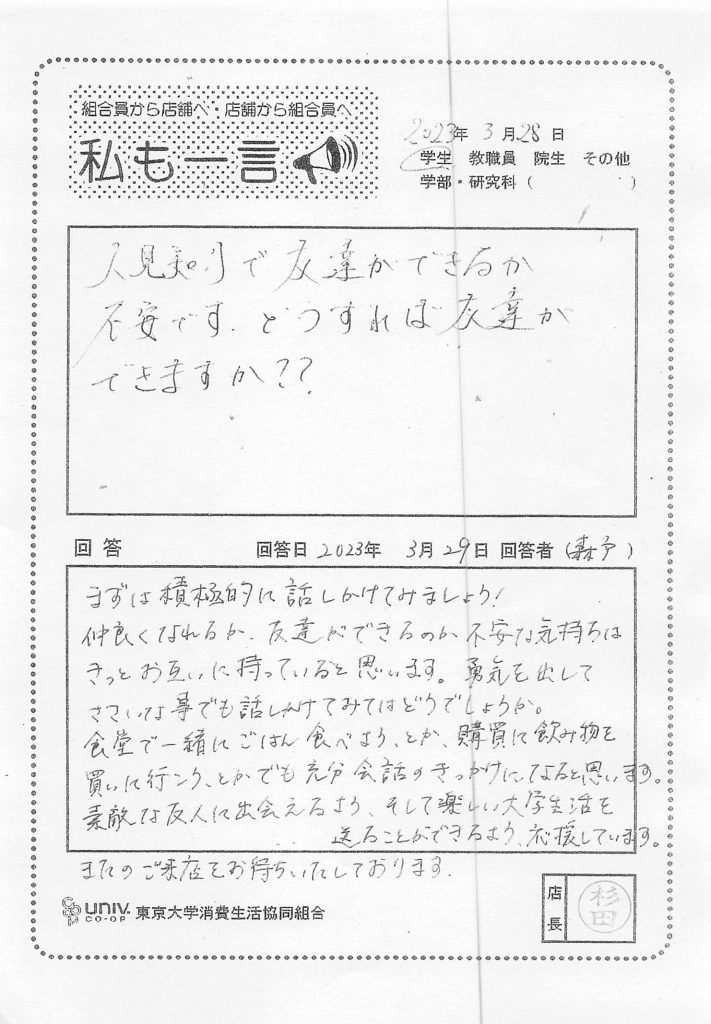 組合員から店舗へ・店舗から組合員へ
私も一言
2023年 3月28日
学生 教職員 院生 その他
学部・研究科( )
人見知りで友達ができるか
不安です. どうすれば友達が
できますか??
回答 回答日 2023年 3月29日 回答者( )
まずは積極的に話しかけてみましょう!
仲良くなれるか、友達ができるのか不安な気持ちは
きっとお互いに持っていると思います。勇気を出して
ささいな事でも話しかけてみてはどうでしょうか。
食堂で一緒にごはん食べよう、とか、購買に飲み物を
買いに行こう、とかでも充分会話のきっかけになると思います。
素敵な友人に出会えるよう、そして楽しい大学生活を
送ることができるよう、応援しています。
またのご来店をお待ちいたしております.
univ. CO-OP 東京大学消費生活協同組合
店長 杉田